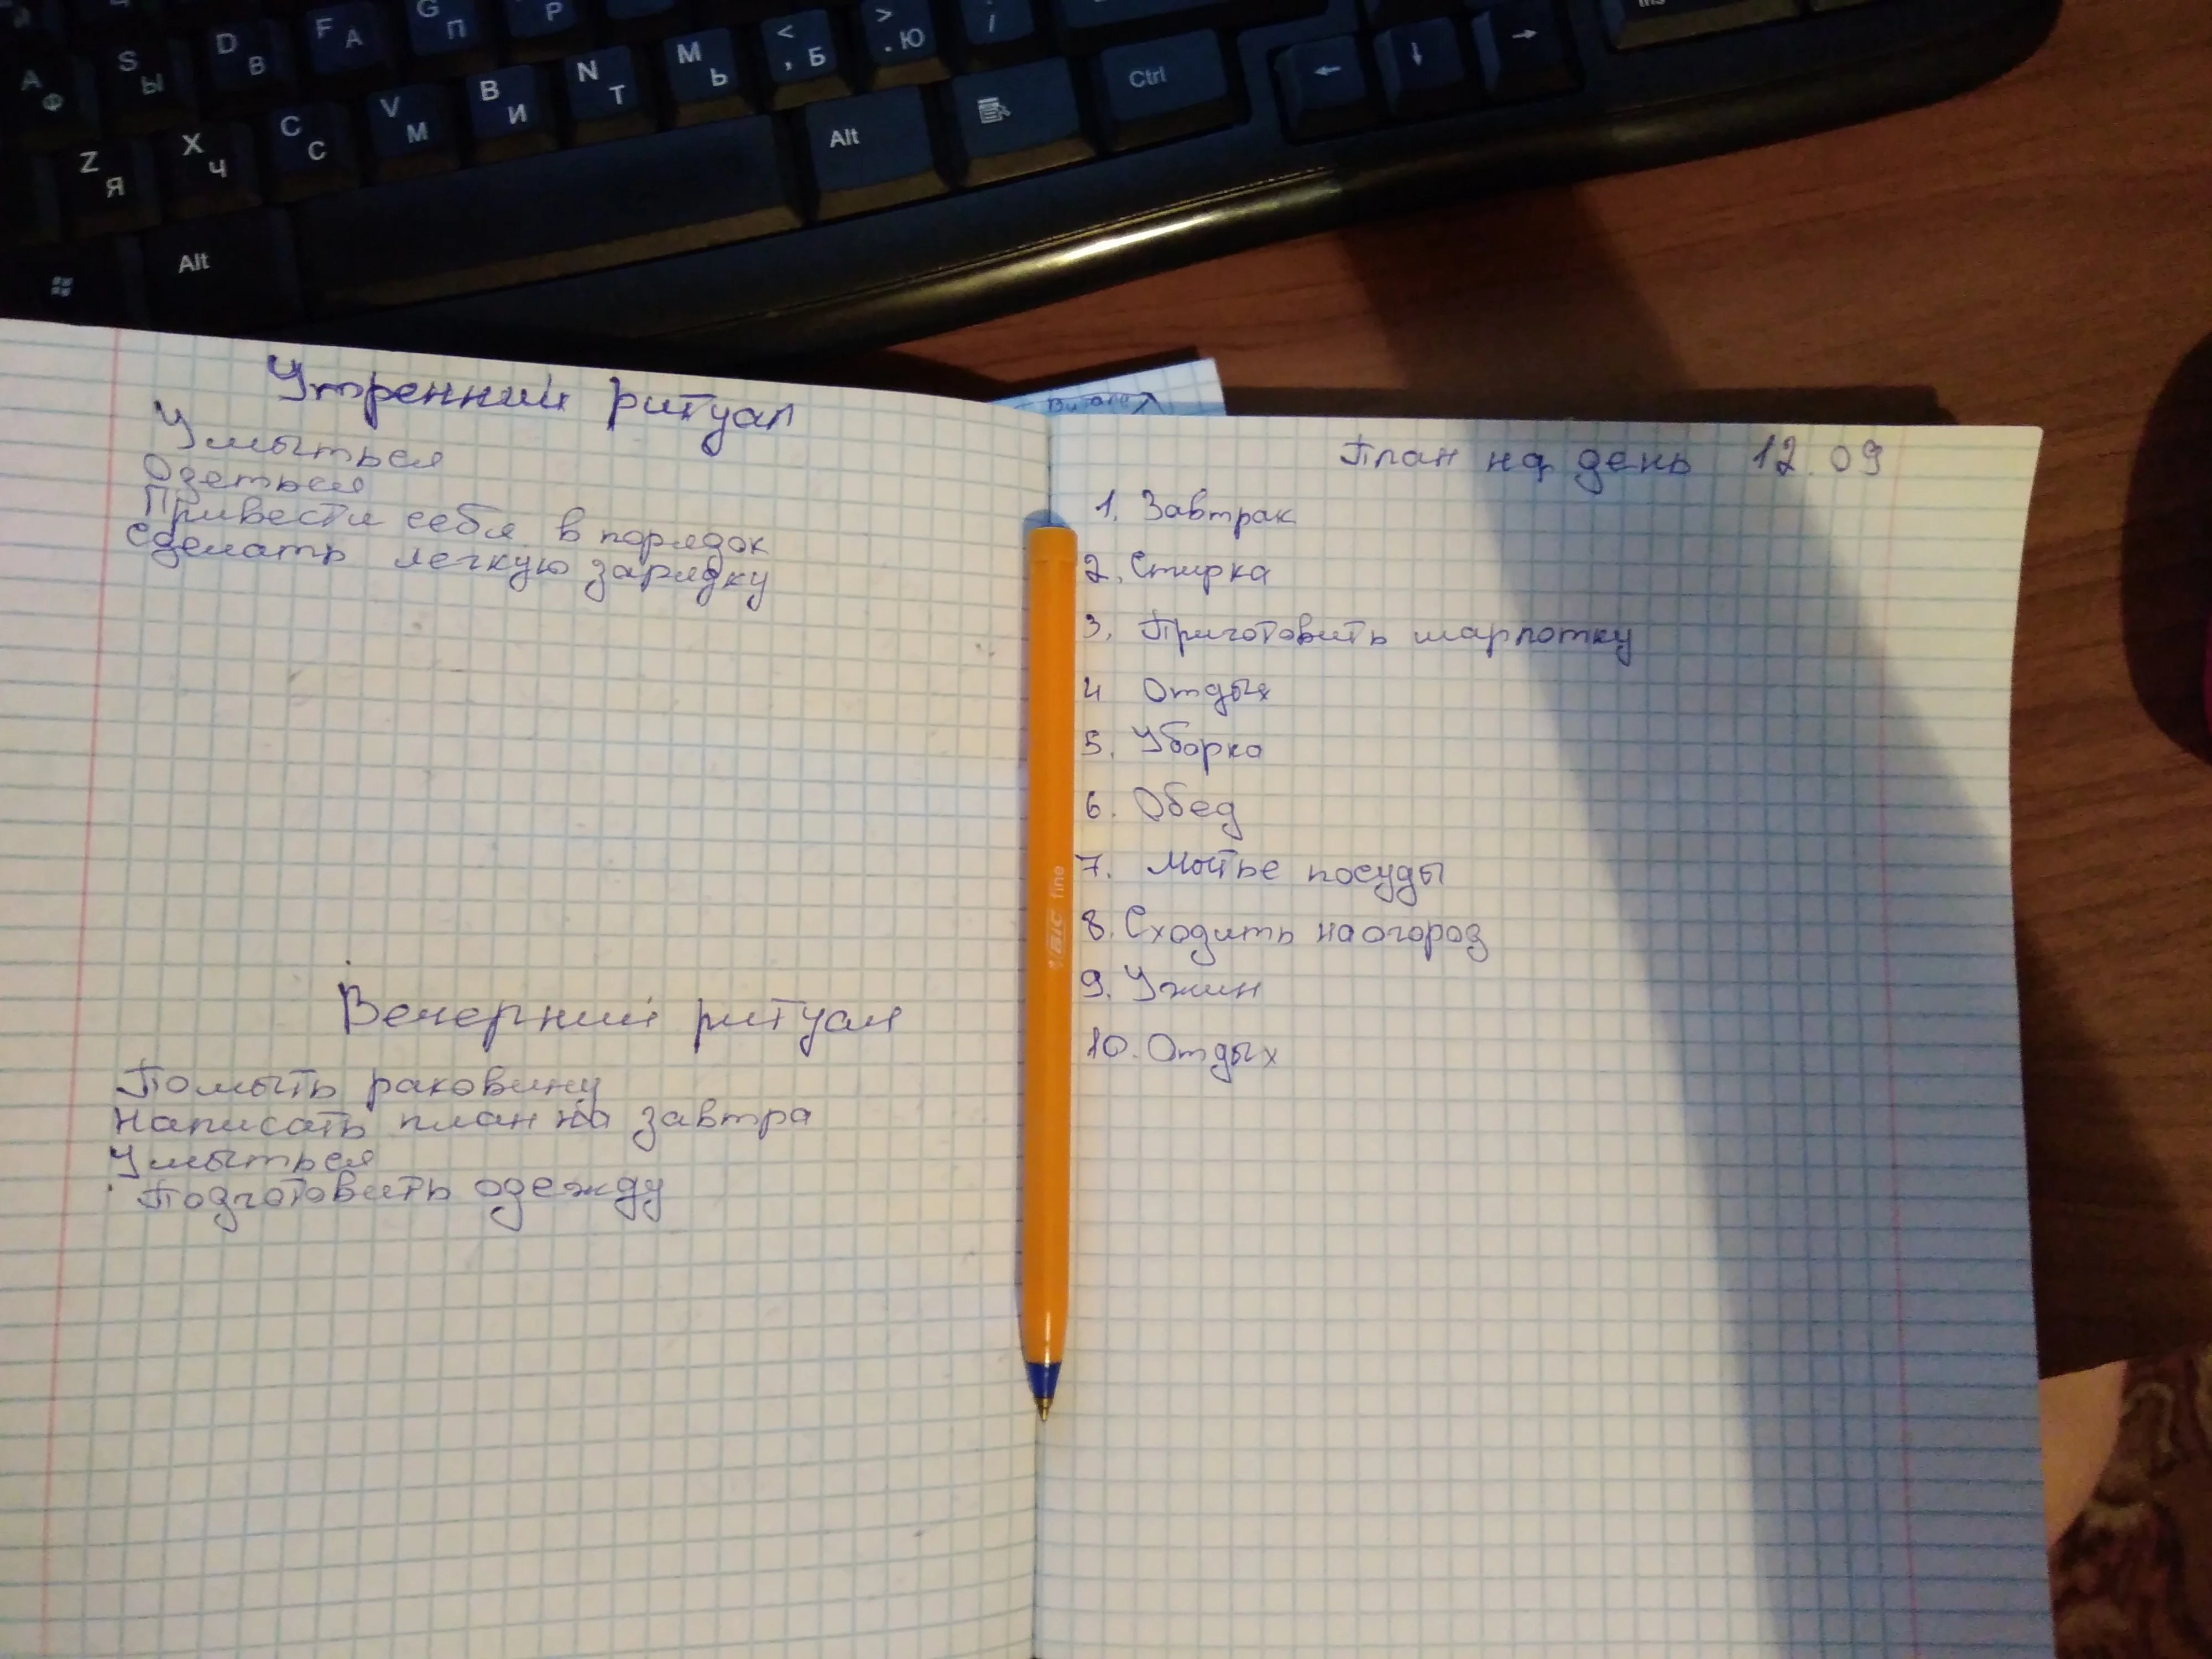 G П
P
A Ф
S Ы
D В
F А
Z Я
X Ч
C С
V М
B И
N Т
M Ь
< , Б
> . Ю
/
Alt
Alt
Ctrl
Утренний ритуал
Умыться
Одеться
Привести себя в порядок
Сделать легкую зарядку
Вечерний ритуал
Помыть раковину
Написать план на завтра
Умыться
Подготовить одежду
BIC fine
План на день 12.09
1. Завтрак
2. Стирка
3. Приготовить шарлотку
4 Отдых
5. Уборка
6. Обед
7. Мытье посуды
8. Сходить на огород
9. Ужин
10. Отдых